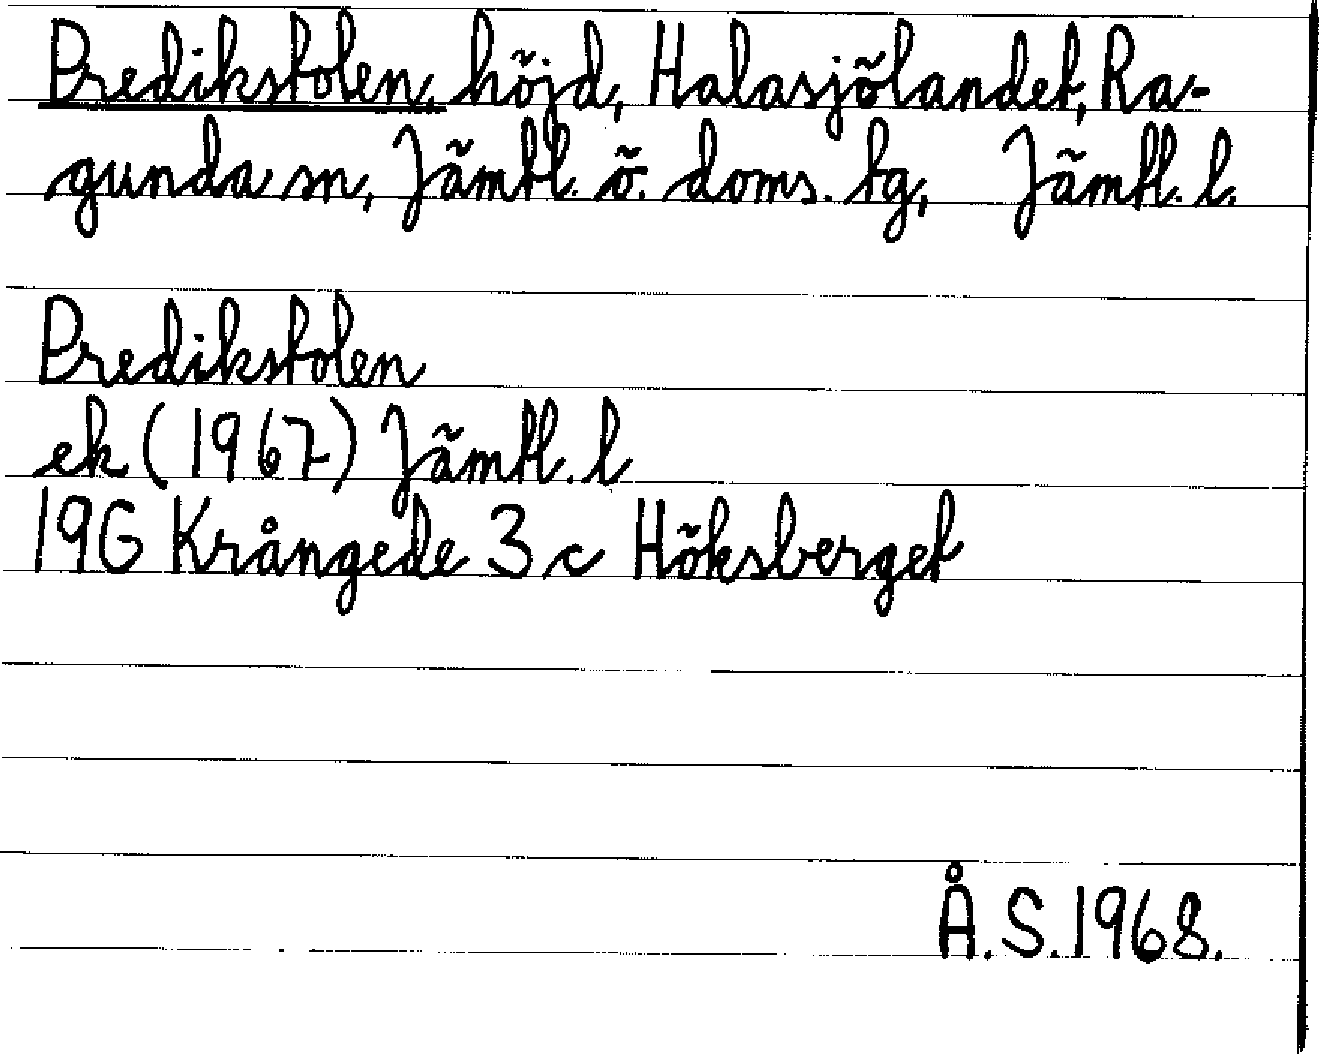 Predikstolen, höjd, Halasjölandet, Ra-
gunda sn, Jämtl. ö. doms. tg, Jämtl. l.
Predikstolen
ek (1967) Jämtl. l
19G Krångede 3 c Höksberget
Å.S.1968.